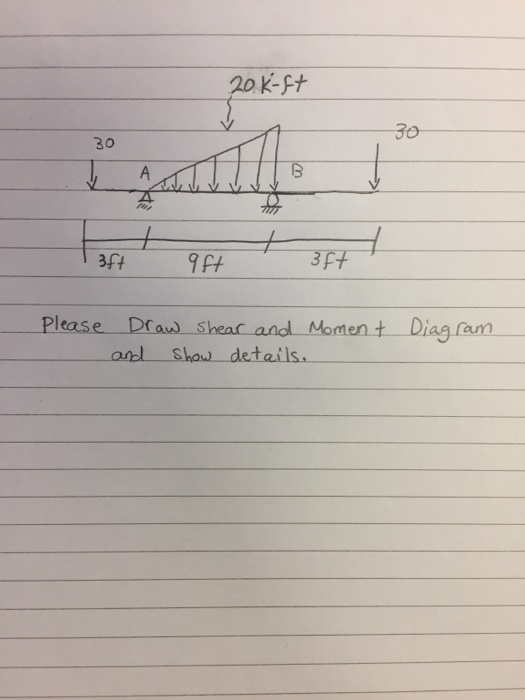 20 K-ft
30
30
A
B
3ft
9ft
3ft
Please Draw shear and Moment Diagram
and show details.